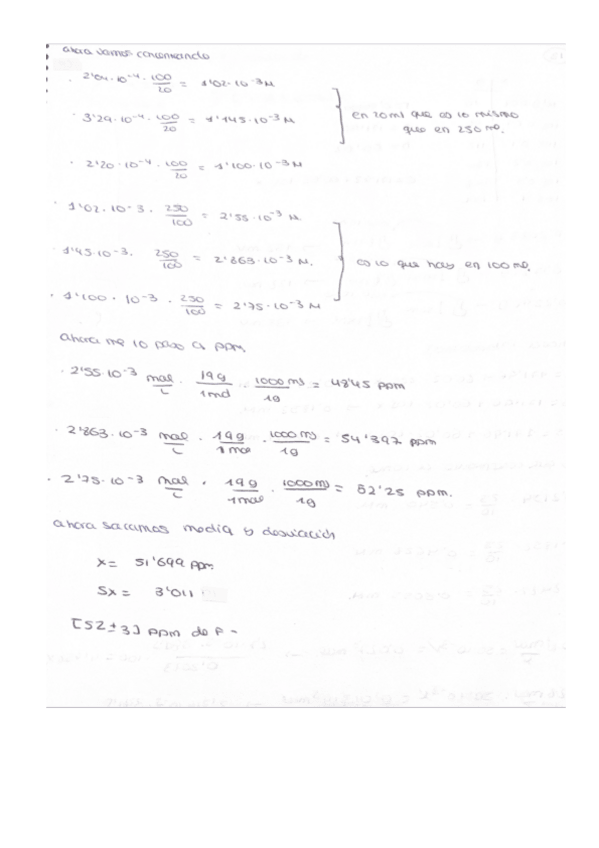 ahora vamos concentrando
· 2'04·10⁻⁴ · 100/20 = 1'02·10⁻³ M
· 3'29·10⁻⁴ · 100/20 = 1'145·10⁻³ M
en 20 ml que es lo mismo
que en 250 ml.
· 2'20·10⁻⁴ · 100/20 = 1'100·10⁻³ M
· 1'02·10⁻³ · 250/100 = 2'55·10⁻³ M.
· 1'45·10⁻³. 250/100 = 2'863·10⁻³ M.
es lo que hay en 100 ml.
· 1'100·10⁻³ · 250/100 = 2'75·10⁻³ M
ahora me lo paso a ppm
· 2'55·10⁻³ mol/L · 19g/1mol · 1000mg/1g = 48'45 ppm
· 2'863·10⁻³ mol/L · 19g/1mol · 1000mg/1g = 54'397 ppm
· 2'75·10⁻³ mol/L · 19g/1mol · 1000mg/1g = 52'25 ppm.
ahora sacamos media y desviación
x = 51'699 ppm
Sx = 3'011
[52 ± 3] ppm de F⁻